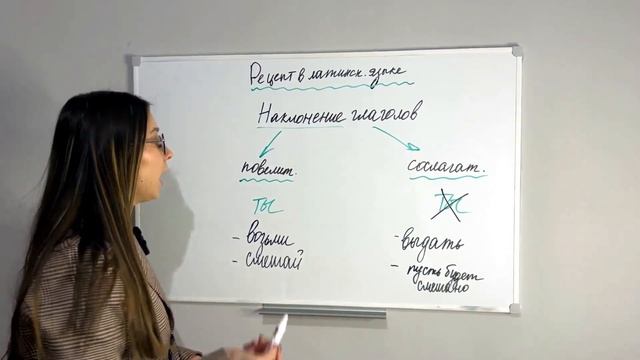 Рецепт в латинск. языке
Наклонение глаголов
повелит.
сослагат.
ты
ты
- возьми
- смешай
- выдать
- пусть будет
смешано